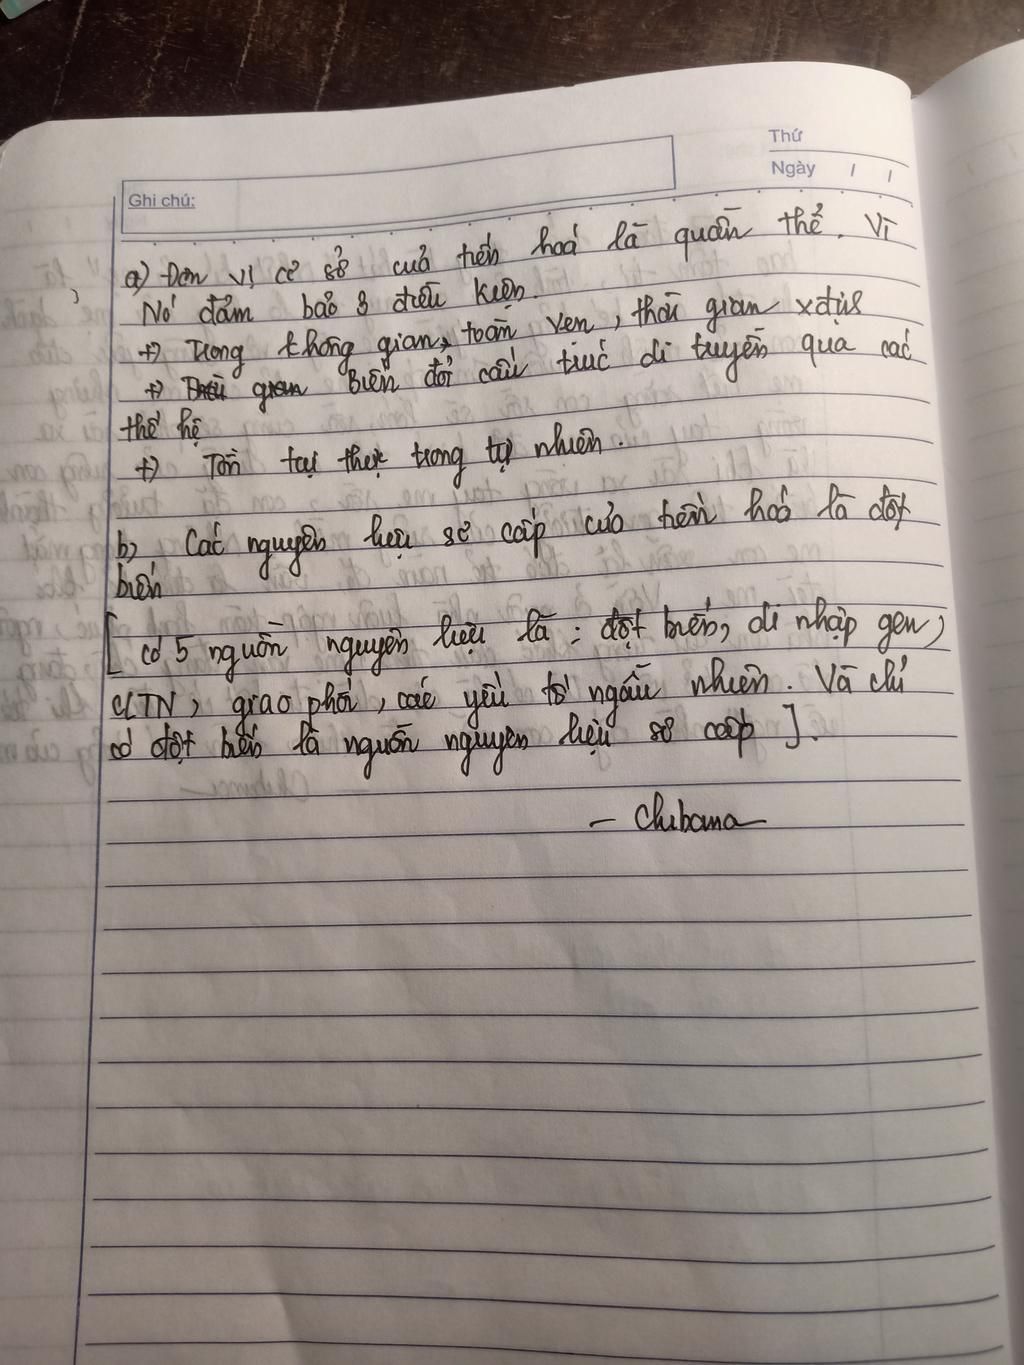 Thứ
Ngày / /
Ghi chú:
a) Đơn vị cơ sở của tiến hoá là quần thể. Vì
Nó đảm bảo 3 điều kiện.
+) Trong không gian, toàn vẹn, thời gian xđịs
+) gian Biến đổi cấu trúc di truyền qua các
thế hệ
+) Tồn tại thực trong tự nhiên.
b) Các nguyên liệu sơ cấp của tiến hoá là đột
biến
[ có 5 nguồn nguyên liệu là : đột biến, di nhập gen,
CLTN, giao phối, các yếu tố ngẫu nhiên. Và chỉ
có đột biến là nguồn nguyên liệu sơ cấp ].
- Chibana